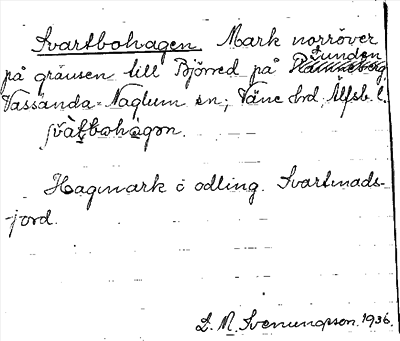 Svartbohagen Mark norröver
på gränsen till Björred på Lunden
Vassända-Naglum sn; Väne hd, Älfsb. l.
svàt̀bohàgən.
Hagmark o odling. Svartmads-
-jord.
D. M. Svenungsson. 1936.